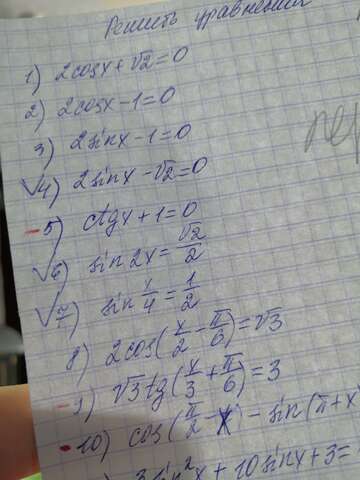 Решить уравнения
1) 2cosx + √2 = 0
2) 2cosx - 1 = 0
3) 2sinx - 1 = 0
√4) 2sinx - √2 = 0
- 5) ctgx + 1 = 0
√6) sin2x = √2/2
√7) sin x/4 = 1/2
8) 2cos(x/2 - π/6) = √3
- 9) √3tg(x/3 + π/6) = 3
• 10) cos(π/2 - x) - sin(π + x
3sin²x + 10sinx + 3 =